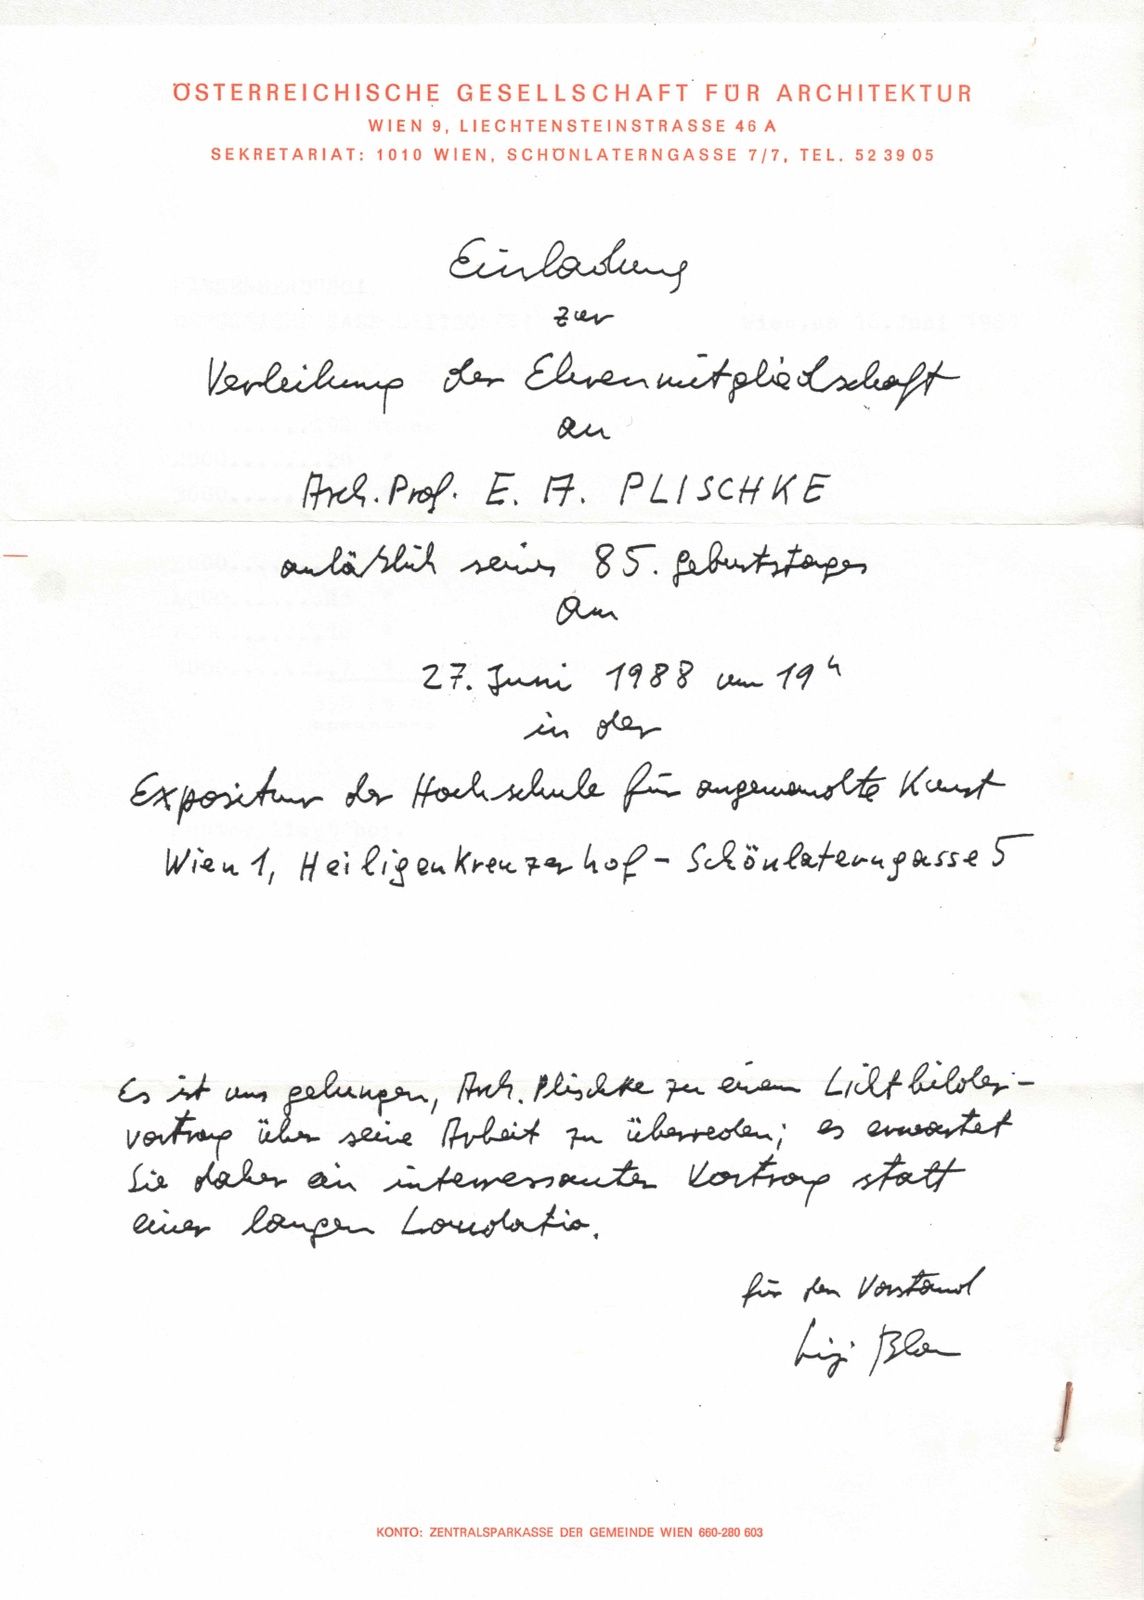 ÖSTERREICHISCHE GESELLSCHAFT FÜR ARCHITEKTUR
WIEN 9, LIECHTENSTEINSTRASSE 46 A
SEKRETARIAT: 1010 WIEN, SCHÖNLATERNGASSE 7/7, TEL. 52 39 05
Einladung
zur
Verleihung der Ehrenmitgliedschaft
an
Arch. Prof. E. A. PLISCHKE
anläßlich seines 85. Geburtstages
am
27. Juni 1988 um 19h
in der
Expositur der Hochschule für angewandte Kunst
Wien 1, Heiligenkreuzerhof - Schönlaterngasse 5
Es ist uns gelungen, Arch. Plischke zu einem Lichtbilder-
vortrag über seine Arbeit zu überreden; es erwartet
Sie daher ein interressanter Vortrag statt
einer langen Laudatio.
für den Vorstand
Blau
KONTO: ZENTRALSPARKASSE DER GEMEINDE WIEN 660-280 603